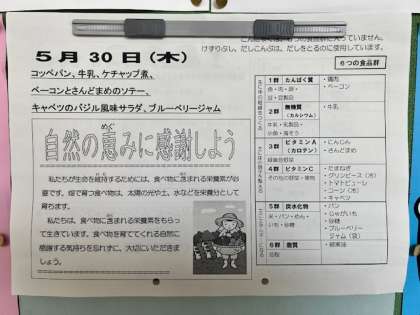 いません。
けずりぶし、だしこんぶは、だしをとるのに使用しています。
5月30日(木)
コッペパン、牛乳、ケチャップ煮、
ベーコンとさんどまめのソテー、
キャベツのバジル風味サラダ、ブルーベリージャム
自然の恵みに感謝しよう
めぐ
私たちが生命を維持するためには、食べ物に含まれる栄養素が必
要です。畑で育つ食べ物は、太陽の光や土、水などを栄養分として
育ちます。
私たちは、食べ物に含まれる栄養素をもらっ
て生きています。食べ物を育ててくれる自然に
感謝する気持ちを忘れずに、大切にいただきま
しょう。
6つの食品群
1群 たんぱく質
魚・肉・卵・
豆・豆製品
・鶏肉
・ベーコン
2群 無機質
(カルシウム)
牛乳・乳製品・
小魚・海そう
・牛乳
3群 ビタミンA
(カロテン)
緑黄色野菜
・にんじん
・さんどまめ
4群 ビタミンC
その他の野菜・果物
・たまねぎ
・グリンピース(冷)
・トマトピューレ
・コーン(冷)
・キャベツ
5群 炭水化物
米・パン・めん・
いも・砂糖
・パン
・じゃがいも
・砂糖
・ブルーベリー
ジャム(袋)
6群 脂質
油脂
・綿実油